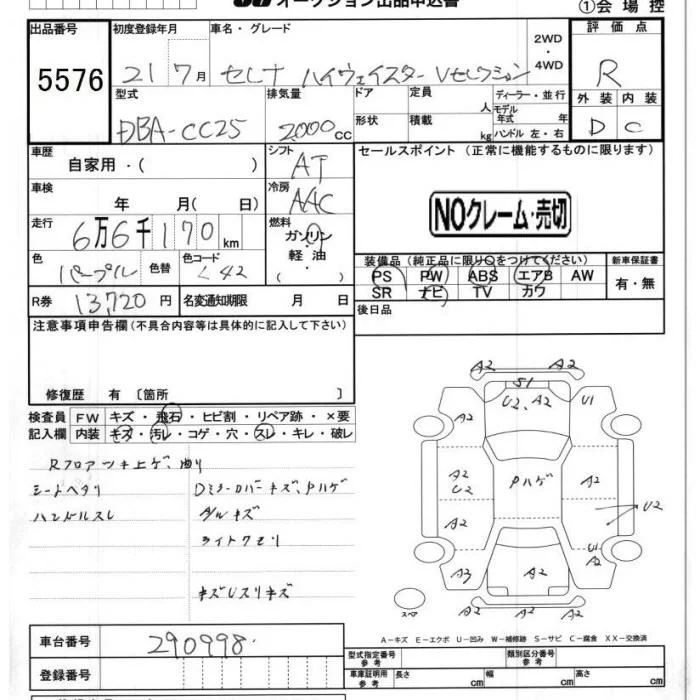 オークション出品申込書
①会場控
出品番号 初度登録年月 車名・グレード 2WD・4WD 評価点
5576 21 7月 セレナ ハイウェイスター Vセレクション R
型式 排気量 ドア 定員 人 ディーラー・並行 外装 内装
DBA-CC25 2000cc 形状 積載 kg モデル年式 年 ハンドル 左・右 D C
車歴 自家用・( ) シフト AT セールスポイント (正常に機能するものに限ります)
車検 年 月( 日) 冷房 AAC
NOクレーム・売切
走行 6万6千170km 燃料 ガソリン 軽油 ( )
装備品 (純正品に限り○をつけてください) 新車保証書
色 パープル 色替 色コード L42 PS PW ABS エアB AW 有・無
SR ナビ TV カワ
R券 13,720円 名変通知期限 月 日 後日品
注意事項申告欄(不具合内容等は具体的に記入して下さい)
修復歴 有 〔箇所 〕
検査員 FW キズ・飛石・ヒビ割・リペア跡・×要
記入欄 内装 キズ・汚レ・コゲ・穴・スレ・キレ・破レ
Rフロアツキ上ゲ、曲り
シートヘタリ Dミラーカバーキズ、Pハゲ
ハンドルスレ アルキズ
ライトクモリ
キズUスリキズ
A2 A2
S1
A2 U2、A2 U1
A2 U2 Pハゲ A2
A2 U2
A3 A2 U1 A2
スペア A2 A2 A2
A-キズ E-エクボ U-凹み W-補修跡 S-サビ C-腐食 XX-交換済
車台番号 290998
型式指定番号 参考 類別区分番号 参考
登録番号 車庫証明用 参考 長さ cm 幅 cm 高さ cm